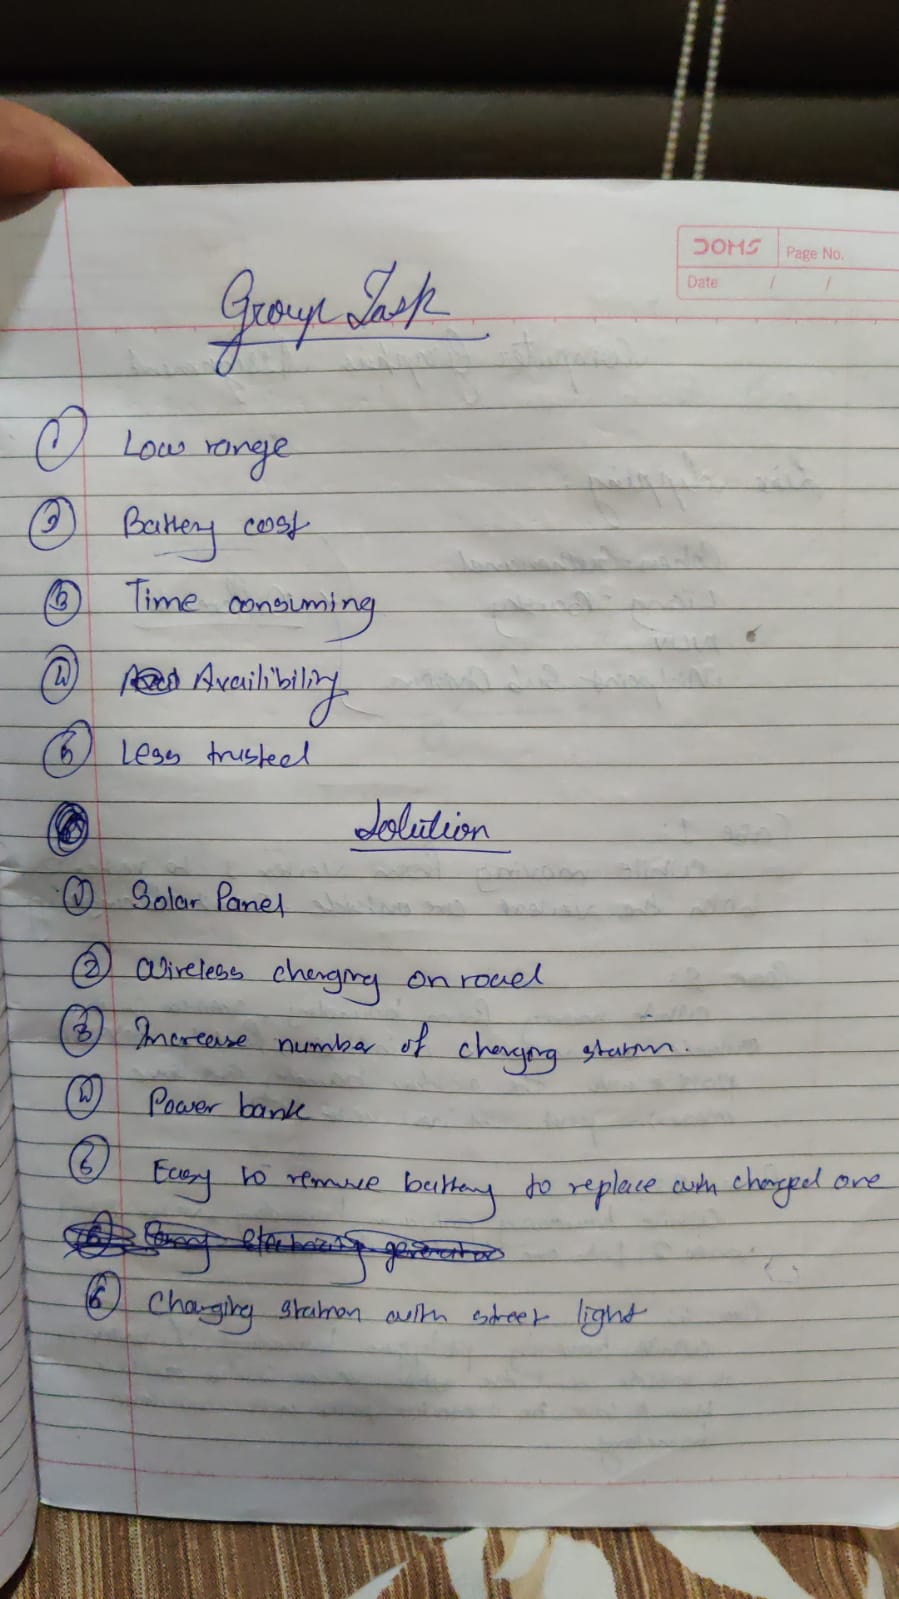 DOMS
Page No.
Date / /
Group Task
① Low range
② Battery cost
③ Time consuming
④ Availibility
⑤ Less trusted
Solution
① Solar Panel
② Wireless charging on road
③ Increase number of charging station.
④ Power bank
⑤ Easy to remove battery to replace with charged one
⑥ Charging station with street light